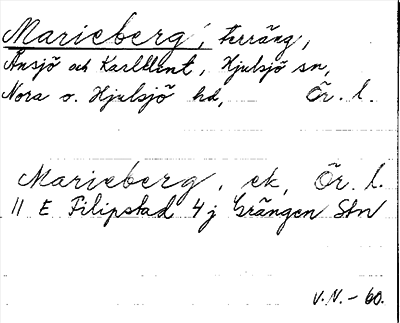 Marieberg, terräng,
Änsjö och Karlklint, Hjulsjö sn,
Nora o. Hjulsjö hd, Ör. l.
Marieberg, ek, Ör. l.
11 E Filipstad 4 j Grängen Stn
V.N. - 60.